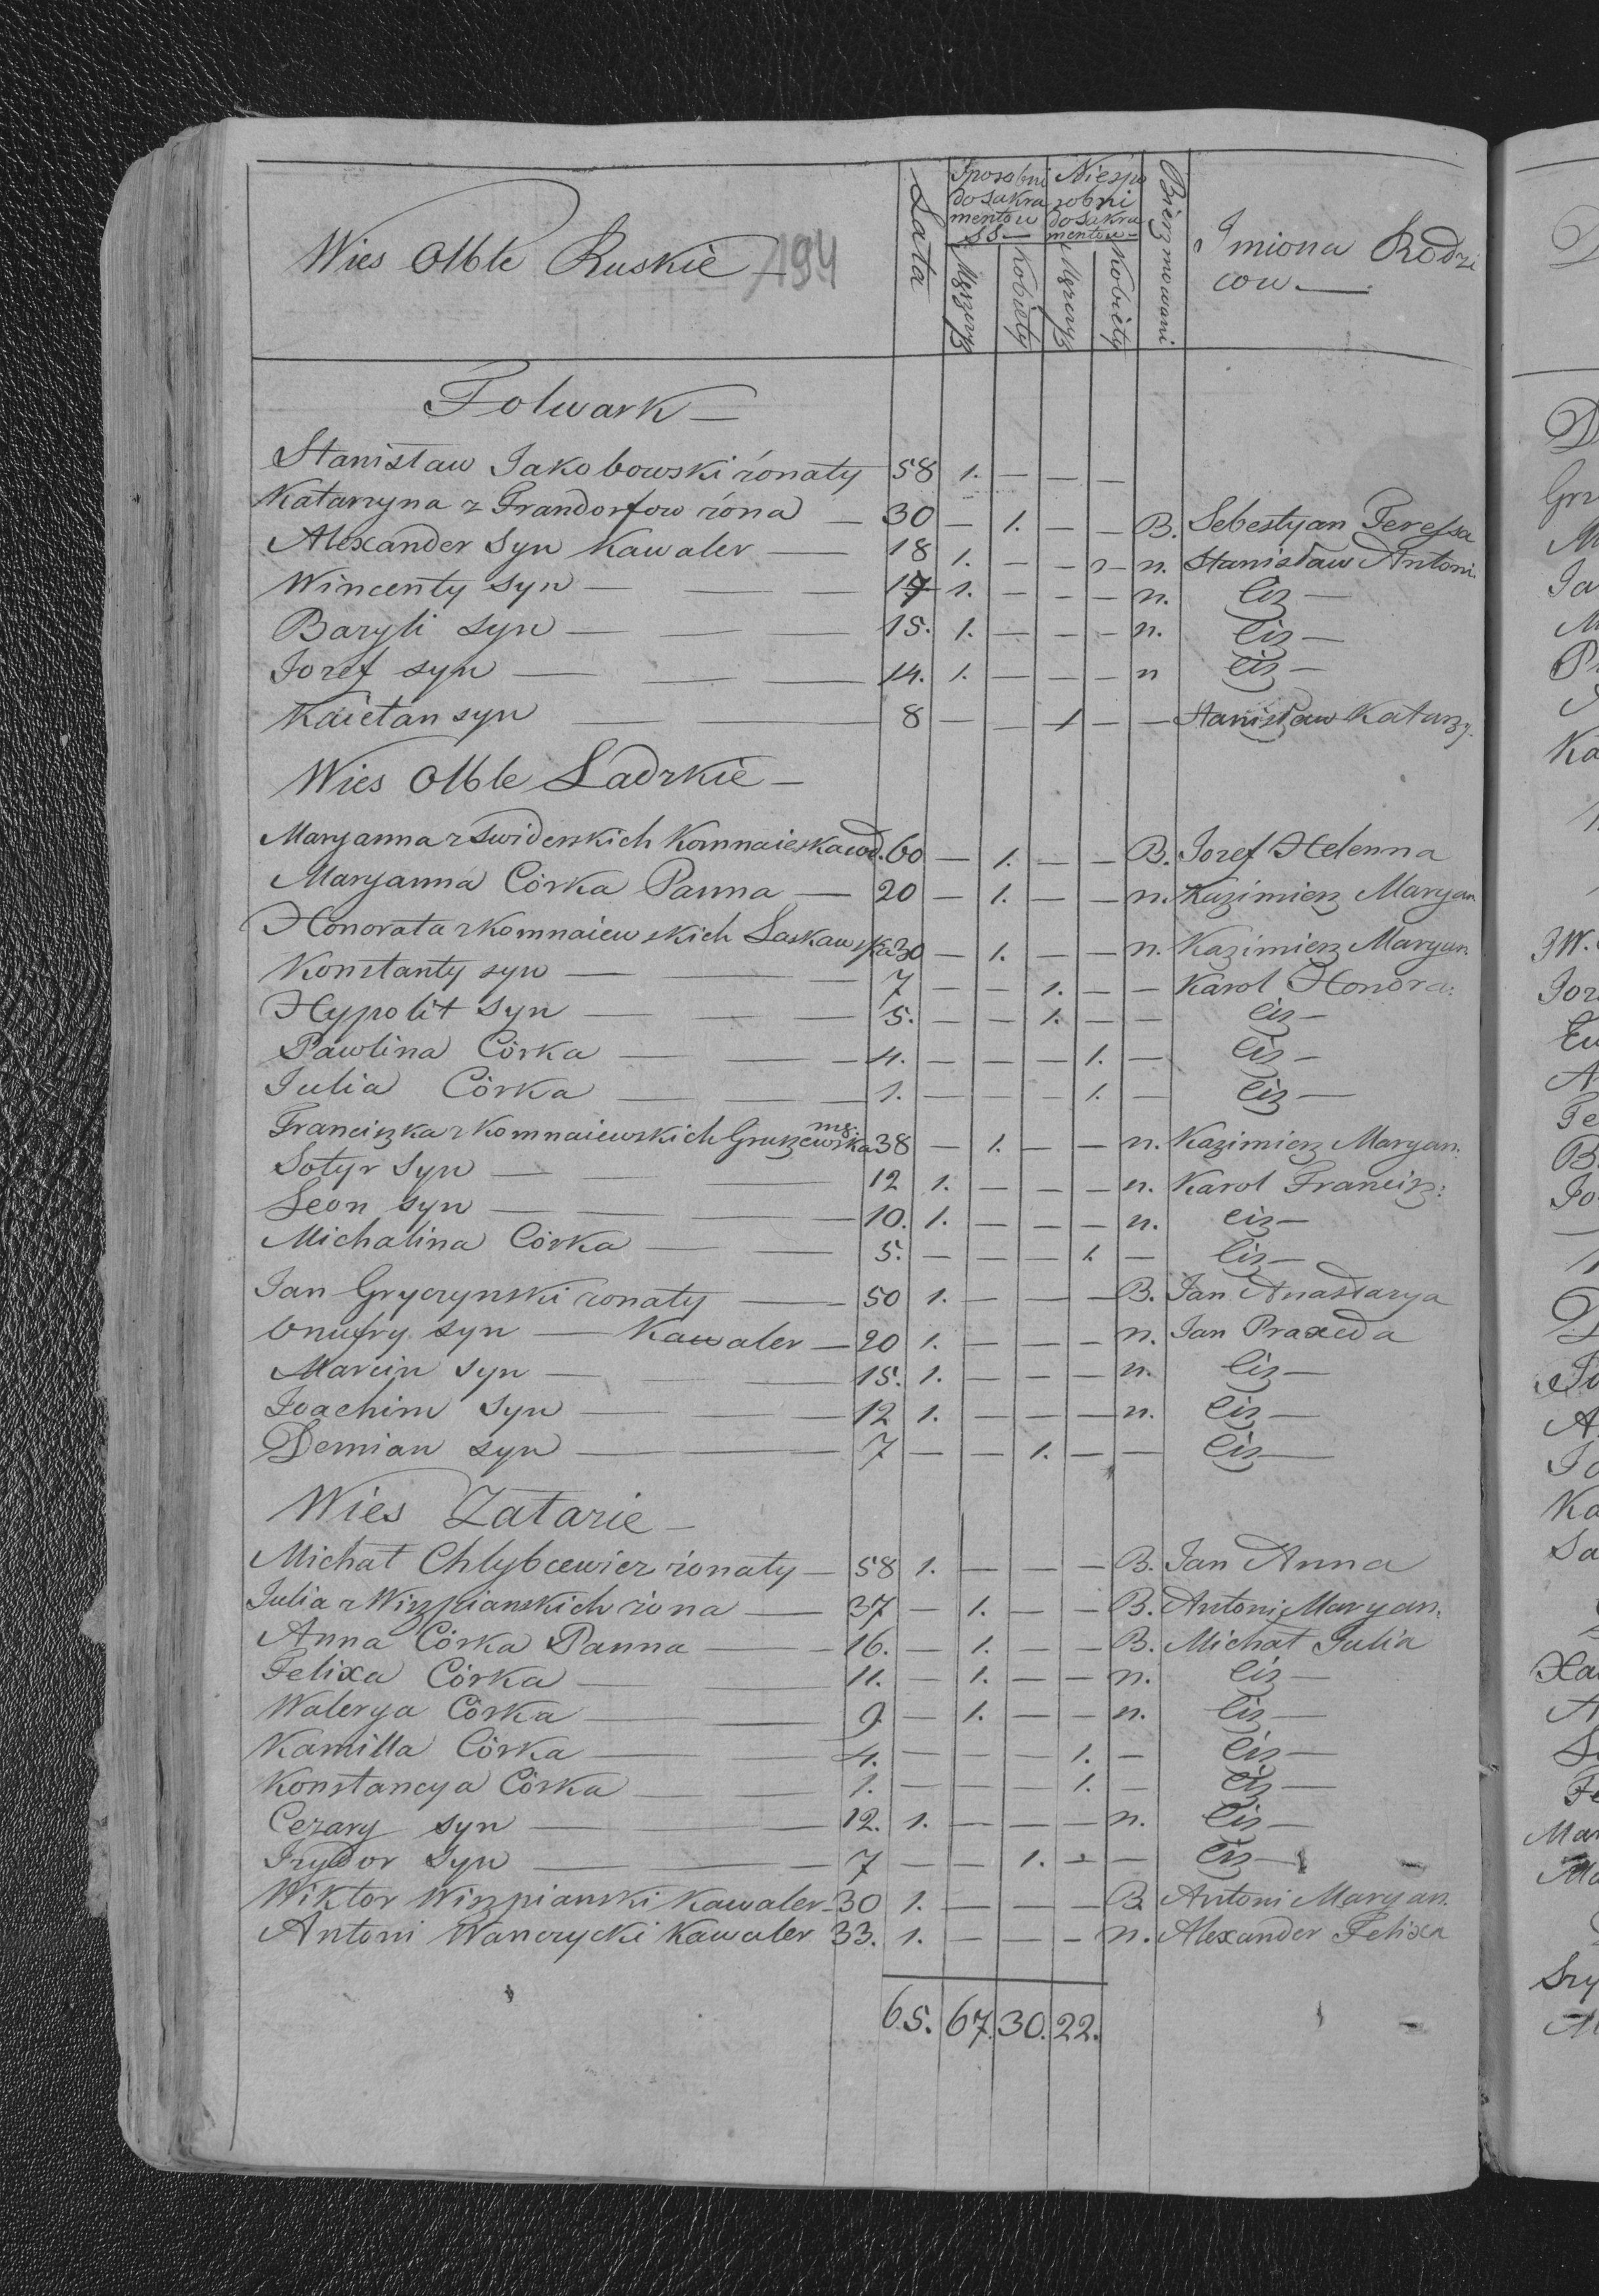 Wies Olble Ruskie — 194
Lata
Sposobni do sakramentow SS —
Niesposobni do sakramentow —
Męzczyz Kobiety Męzczyz Kobiety
Bierzmowani
Imiona Rodzicow —
Folwark —
Stanisław Jakobowski żonaty 58 1. — — —
Katarzyna z Grandorfow żona — 30 — 1. — — B. Sebestyan Teressa
Alexander Syn Kawaler — 18 1. — — — n. Stanisław Antoni.
Wincenty syn — — — 17 1. — — — n. Ciz —
Bazyli syn — — — 15. 1. — — — n. Ciz —
Jozef syn — — — 14. 1. — — — n Ciz —
Kaietan syn — — — 8 — — 1 — — Stanisław Katarzy.
Wies Olble Ladzkie —
Maryanna z Swiderskich Komnaieska wd. 60 — 1. — — B. Jozef Helenna
Maryanna Córka Panna — 20 — 1. — — n. Kazimierz Maryan
Honorata z Komnaiewskich Laskawska 30 — 1. — — n. Kazimierz Maryan.
Konstanty syn — — 7 — — 1. — — Karol Honora:
Hypolit Syn — — — 5. — — 1. — — Ciz —
Pawlina Córka — — — 4. — — — 1. — Ciz —
Julia Córka — — — 1. — — — 1. — Ciz —
Franciszka z Komnaiewskich Gruszewska mę. 38 — 1. — — n. Kazimierz Maryan.
Sotyr Syn — — — 12 1. — — — n. Karol Francisz:
Leon syn — — — 10. 1. — — — n. Ciz —
Michalina Córka — — 5. — — — 1. — Ciz —
Jan Gryczynski zonaty — 50 1. — — — B. Jan Anastazya
Onufry syn — Kawaler — 20 1. — — — n. Jan Praxeda
Marcin syn — — — 15. 1. — — — n. Ciz —
Joachim Syn — — — 12 1. — — — n. Ciz —
Demian syn — — — 7 — — 1. — — Ciz —
Wies Zatazie —
Michał Chlybcewicz żonaty — 58 1. — — — B. Jan Anna
Julia z Wiszpianskich żona — 37 — 1. — — B. Antoni Maryan.
Anna Córka Panna — 16. — 1. — — B. Michał Julia
Felixa Córka — — 11. — 1. — — n. Ciz —
Walerya Córka — — 9. — 1. — — n. Ciz —
Kamilla Córka — — 4. — — — 1. — Ciz —
Konstancya Córka — — 1. — — — 1. — Ciz —
Cezary syn — — — 12. 1. — — — n. Ciz —
Izydor Syn — — — 7 — — 1. — — Ciz —
Wiktor Wiszpianski Kawaler — 30 1. — — — B. Antoni Maryan.
Antoni Wanczycki Kawaler 33. 1. — — — n. Alexander Felixa
65. 67. 30. 22.